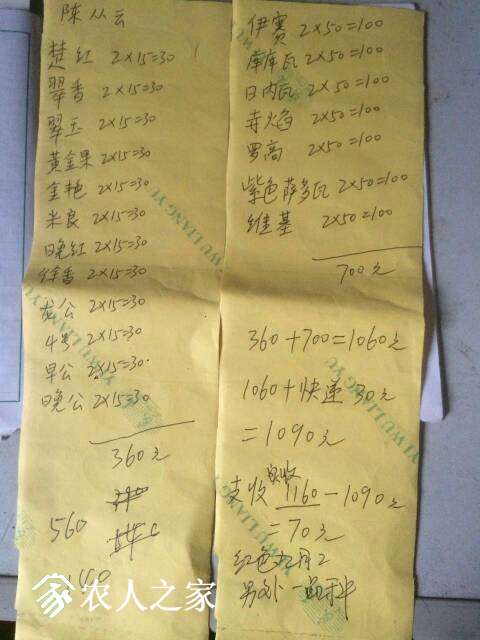 陈从云
楚红 2×15=30
翠香 2×15=30
翠玉 2×15=30
黄金果 2×15=30
金艳 2×15=30
米良 2×15=30
晚红 2×15=30
徐香 2×15=30
龙公 2×15=30
4号 2×15=30
早公 2×15=30
晚公 2×15=30
360元
560
140
伊赛 2×50=100
库库瓦 2×50=100
日内瓦 2×50=100
寺焰 2×50=100
罗高 2×50=100
紫色萨多瓦 2×50=100
维基 2×50=100
700元
360+700=1060元
1060+快递30元
=1090元
支收 1160-1090元
=70元
红色九月2
另外一品种
农人之家